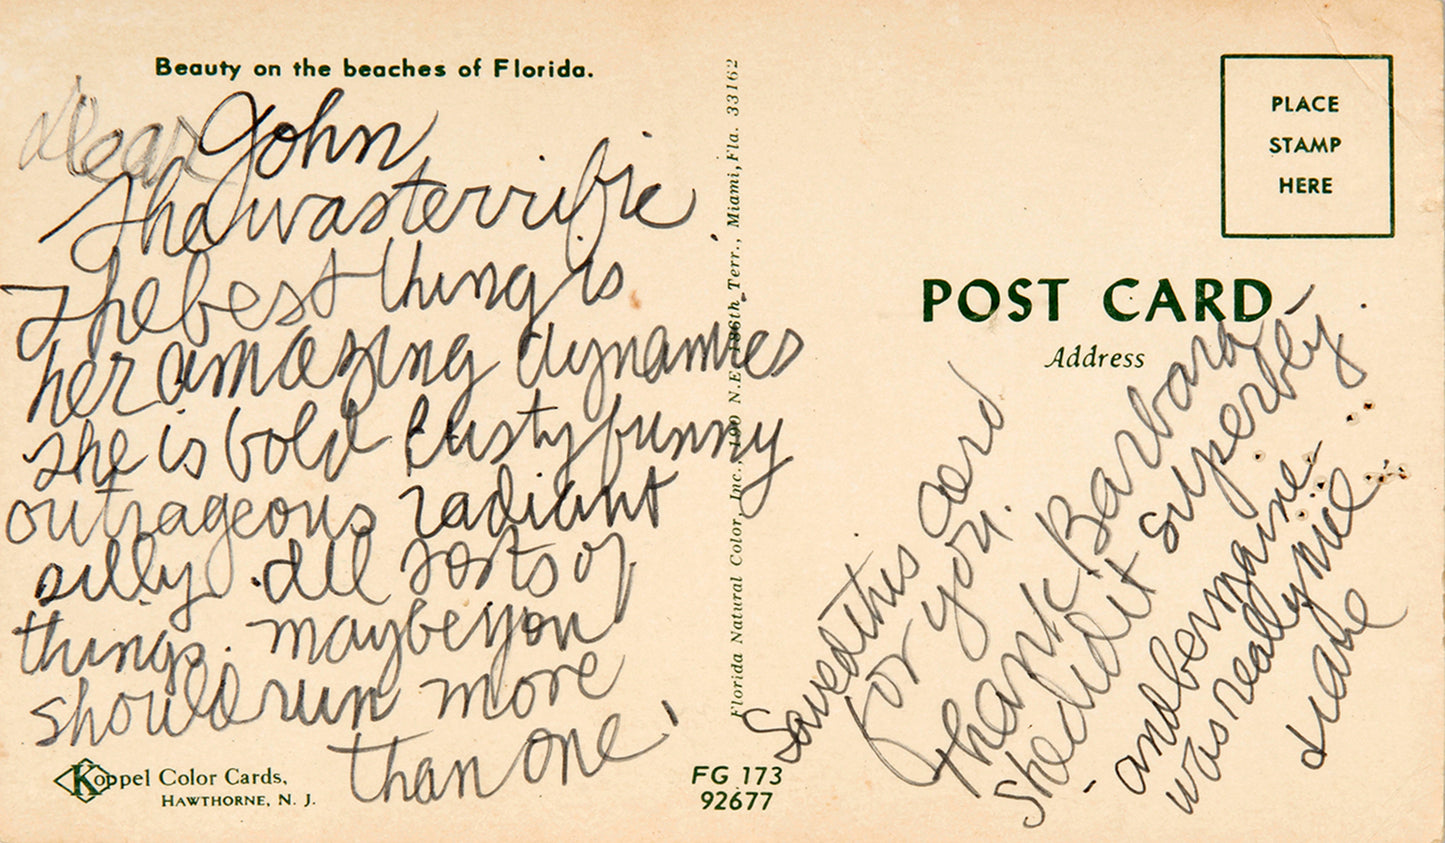 Beauty on the beaches of Florida.
Dear John
The was terrific
The best thing is
her amazing dynamics
She is bold lusty funny
outrageous radiant
silly. All sorts of
things. Maybe you
should run more
than one!
Koppel Color Cards,
HAWTHORNE, N. J.
Florida Natural Color, Inc., 190 N.E. 186th Terr., Miami, Fla. 33162
FG 173
92677
PLACE
STAMP
HERE
POST CARD
Address
Saved this card
for you.
Thank Barbara
She did it superbly.
- and
was really nice
Diane